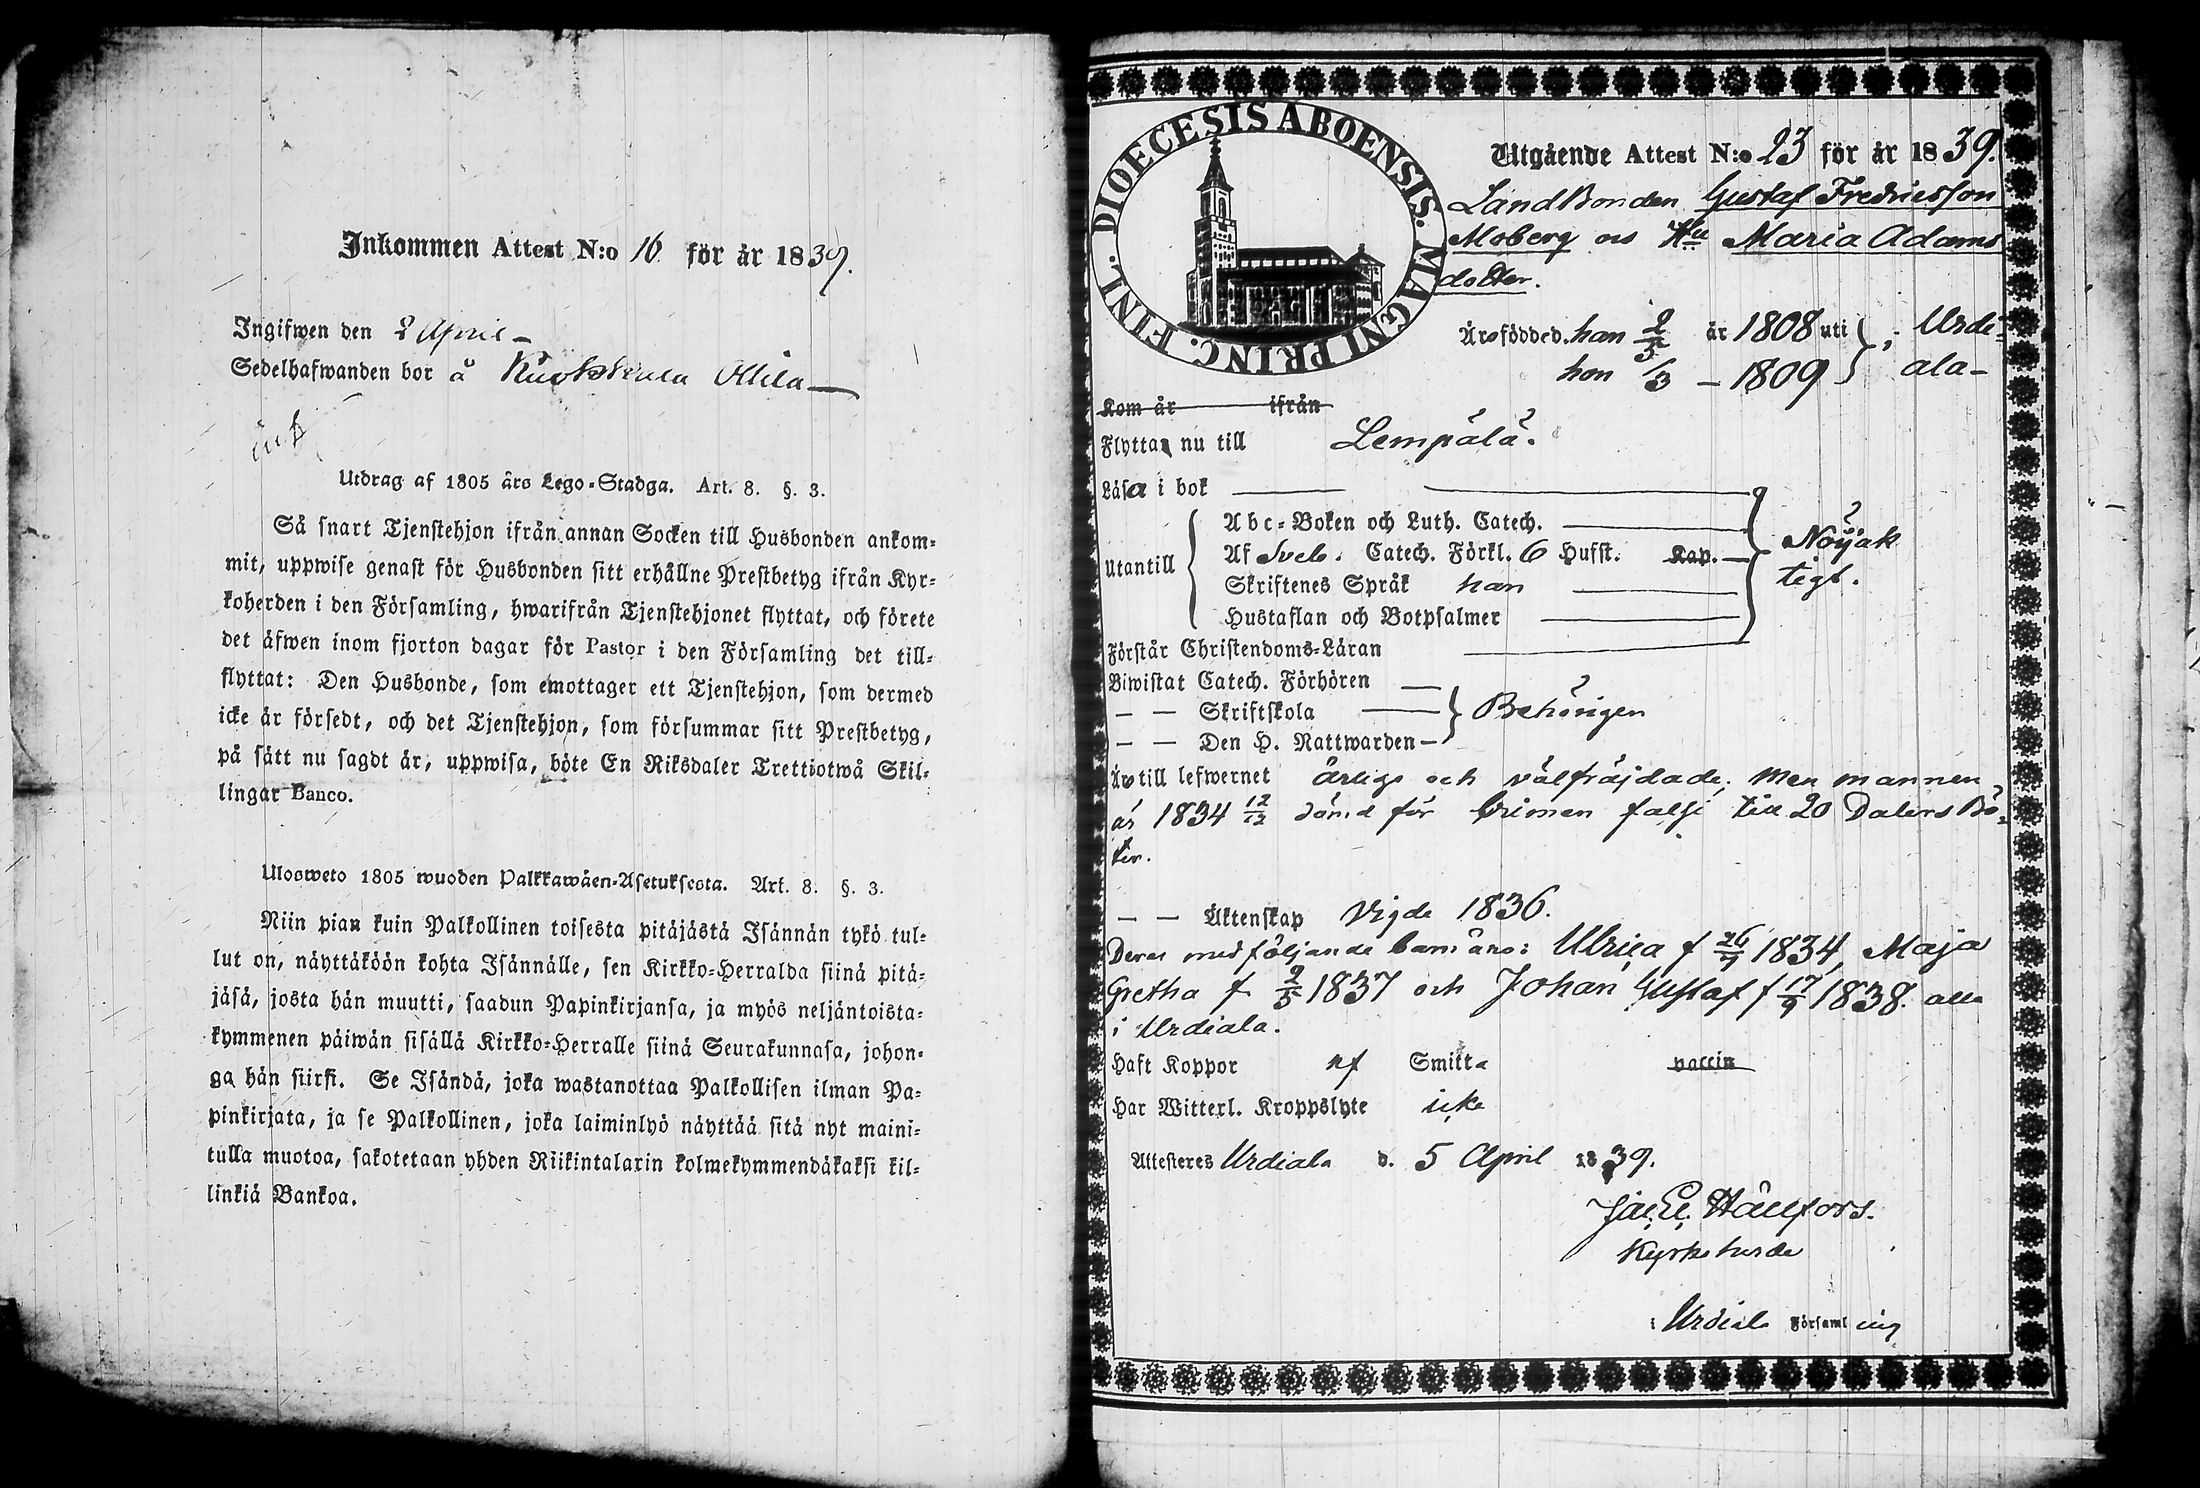 Inkommen Attest N:o 16 för år 1839.
Ingifwen den 8 April
Sedelhafwanden bor å Kuokkala Ollila
Utdrag af 1805 års Lego-Stadga. Art. 8. §. 3.
Så snart Tjenstehjon ifrån annan Socken till Husbonden ankom-
mit, uppwise genast för Husbonden sitt erhållne Prestbetyg ifrån Kyr-
koherden i den Församling, hwarifrån Tjenstehjonet flyttat, och förete
det äfwen inom fjorton dagar för Pastor i den Församling det till-
flyttat: Den Husbonde, som emottager ett Tjenstehjon, som dermed
icke är försedt, och det Tjenstehjon, som försummar sitt Prestbetyg,
på sätt nu sagdt är, uppwisa, böte En Riksdaler Trettiotwå Skil-
lingar Banco.
Ulosweto 1805 wuoden Palkkawäen-Asetuksesta. Art. 8. §. 3.
Niin pian kuin Palkollinen toisesta pitäjästä Isännän tykö tul-
lut on, näyttäköön kohta Isännälle, sen Kirkko-Herralda siinä pitä-
jäsä, josta hän muutti, saadun Papinkirjansa, ja myös neljäntoista-
kymmenen päiwän sisällä Kirkko-Herralle siinä Seurakunnasa, johon-
ga hän siirsi. Se Isändä, joka wastanottaa Palkollisen ilman Pa-
pinkirjata, ja se Palkollinen, joka laiminlyö näyttää sitä nyt maini-
tulla muotoa, sakotetaan yhden Riikintalarin kolmekymmendäkaksi kil-
linkiä Bankoa.
DIOECESIS ABOENSIS. MAGNI PRINC. FINL.
Utgående Attest N:o 23 för år 1839.
Landbonden Gustaf Fredricsson
Moberg os Hu Maria Adams
dotter.
Äro födde d. han 2/5 år 1808 uti } i Urdi-
hon /3 – 1809 } ala –
Kom år ifrån
Flytta nu till Lempälä.
Läsa i bok
Utantill
Abc-Boken och Luth. Catech.
Af Sveb. Catech. Förkl. 6 Hufst. Kap.
Skriftenes Språk han
Hustaflan och Botpsalmer
Nöjak
tigt.
Förstår Christendoms-Läran
Biwistat Catech. Förhören
— — Skriftskola
— — Den H. Nattwarden
Behörigen
Äro till lefwernet ärlige och välfräjdade; men mannen
är 1834 12/12 dömd för crimen falsi till 20 Dalers Bö-
ter.
— — Äktenskap vigde 1836.
Deras medföljande barn äro: Ulrica f 26/7 1834, Maja
Gretha f 2/5 1837 och Johan Gustaf f 17/9 1838. alla
i Urdiala.
Haft Koppor af Smitta vaccin
Har Witterl. Kroppslyte icke
Attesteres Urdiala d. 5 April 1839.
Jac. E. Hällfors.
Kyrkoherde
i Urdiala Församling